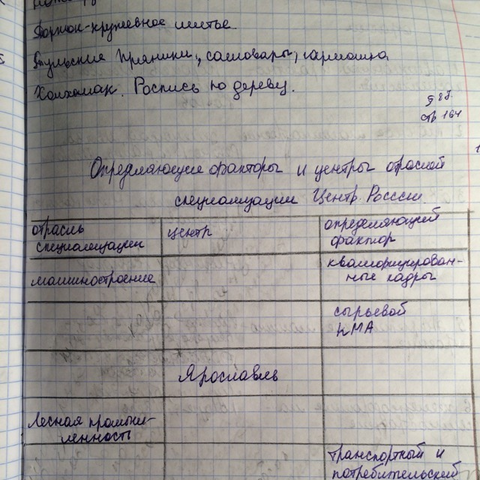 Торжок-кружевное шитье
Тульские пряники, самовары, гармошка
Хохлома. Роспись по дереву.
стр 164
Определяющие факторы и центры отраслей
специализации Центр. России
отрасль
специализации
центр
определяющий
фактор
машиностроение
квалифицирован-
ные кадры
сырьевой
КМА
Ярославль
Лесная промыш-
ленность
транспортный и
потребительский